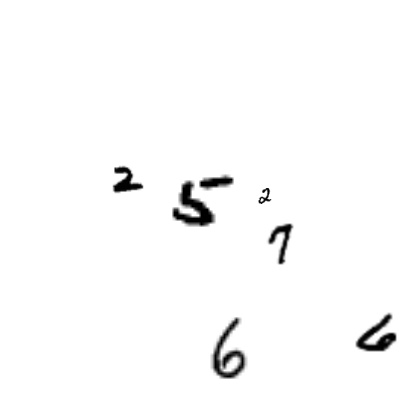 2 5 2
7
6 6